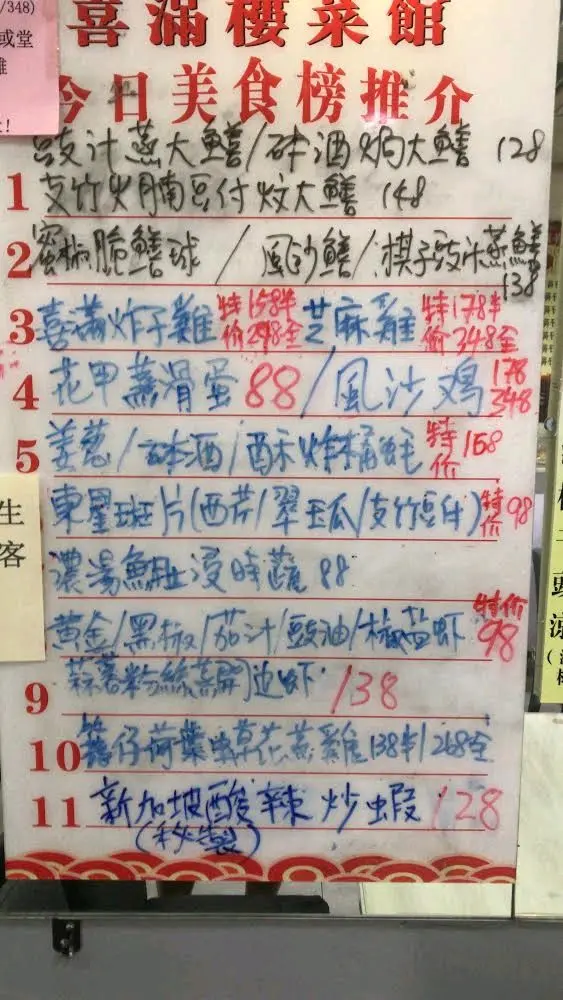 /348)
或堂
喜滿樓菜館
今日美食榜推介
豉汁蒸大鱔/砵酒焗大鱔 128
1 支竹火腩豆付炆大鱔 148
2 蜜椒脆鱔球 / 風沙鱔/棋子豉汁蒸鱔 138
3 喜滿炸子雞 特价 158半 298全 芝麻雞 特價 178半 348全
4 花甲蒸滑蛋 88/風沙鸡 178 348
5 姜葱/砵酒/酥炸桶蚝 特价 168
生
客
東星斑片(西芹/翠玉瓜/支竹豆付) 特价 98
濃湯魚肚浸時蔬 88
黄金/黑椒/茄汁/豉油/椒盐虾 特价 98
9 蒜蓉粉絲蒸開边虾 138
10 籠仔荷葉虫草花蒸雞 138半/268全
11 新加坡酸辣炒蝦 128
(秘製)